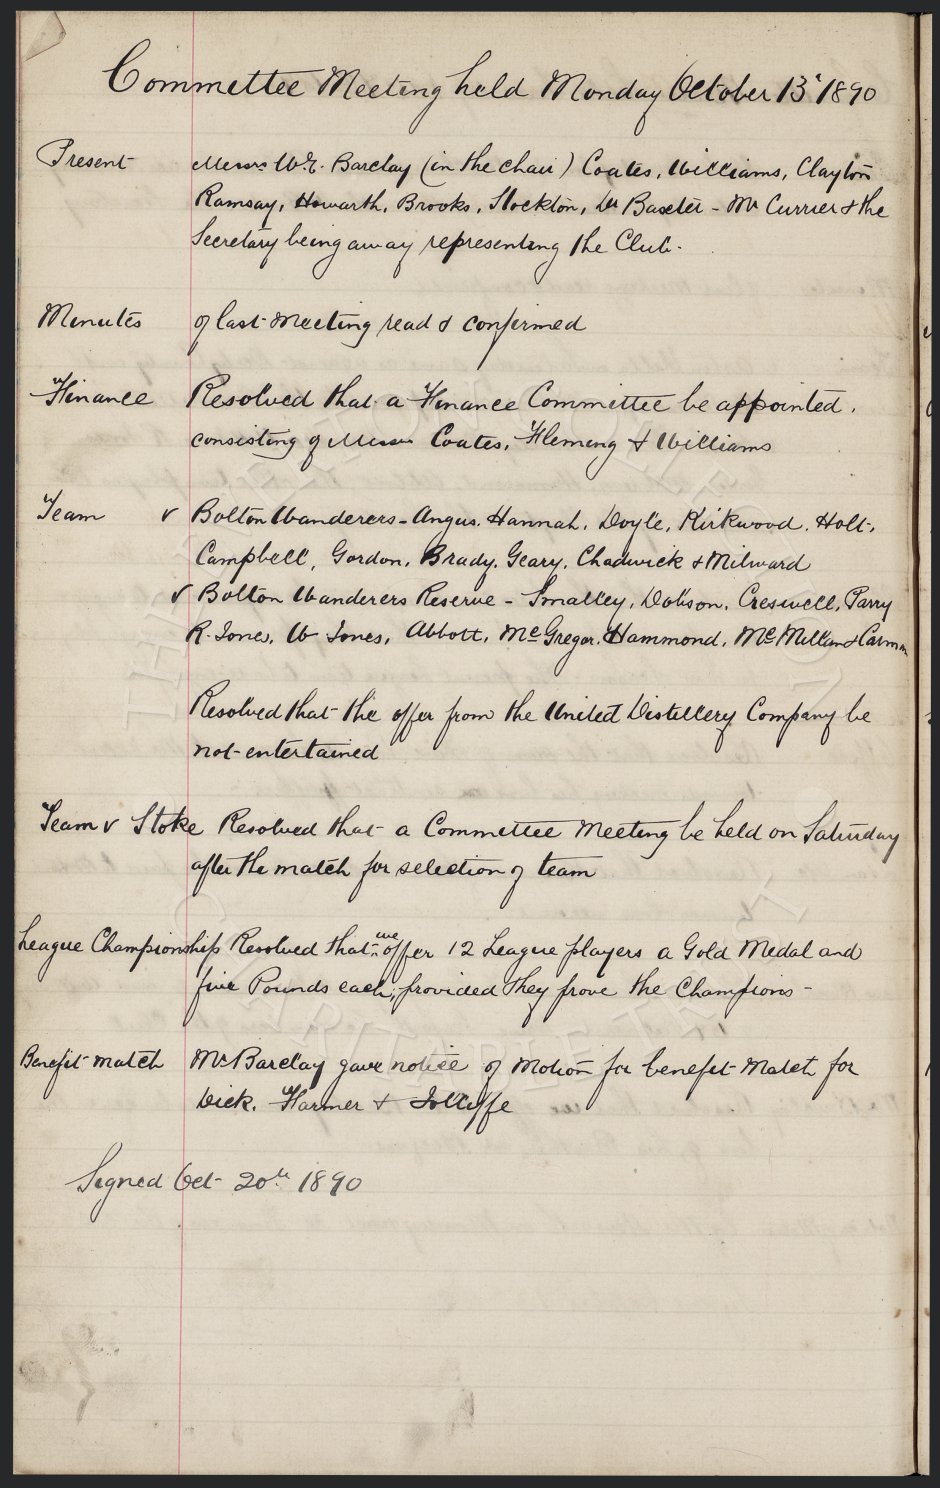 Committee Meeting held Monday October 13th 1890
Present Messrs W.E. Barclay (in the chair) Coates, Williams, Clayton
Ramsay, Howarth, Brooks, Stockton, Dr Baxter - Mr Currier & the
Secretary being away representing the Club.
Minutes of last meeting read & confirmed
Finance Resolved that a Finance Committee be appointed,
consisting of Messrs Coates, Fleming & Williams
Team v Bolton Wanderers - Angus, Hannah, Doyle, Kirkwood, Holt,
Campbell, Gordon, Brady, Geary, Chadwick & Milward
v Bolton Wanderers Reserve - Smalley, Dobson, Creswell, Parry
R. Jones, W Jones, Abbott, McGregor, Hammond, McMillan & Carman
Resolved that the offer from the United Distillery Company be
not entertained
Team v Stoke Resolved that a Committee Meeting be held on Saturday
after the match for selection of team
League Championship Resolved that we offer 12 League players a Gold Medal and
five Pounds each, provided they prove the Champions -
Benefit match Mr Barclay gave notice of Motion for benefit Match for
Dick, Farmer & Jolliffe
Signed Oct 20th 1890